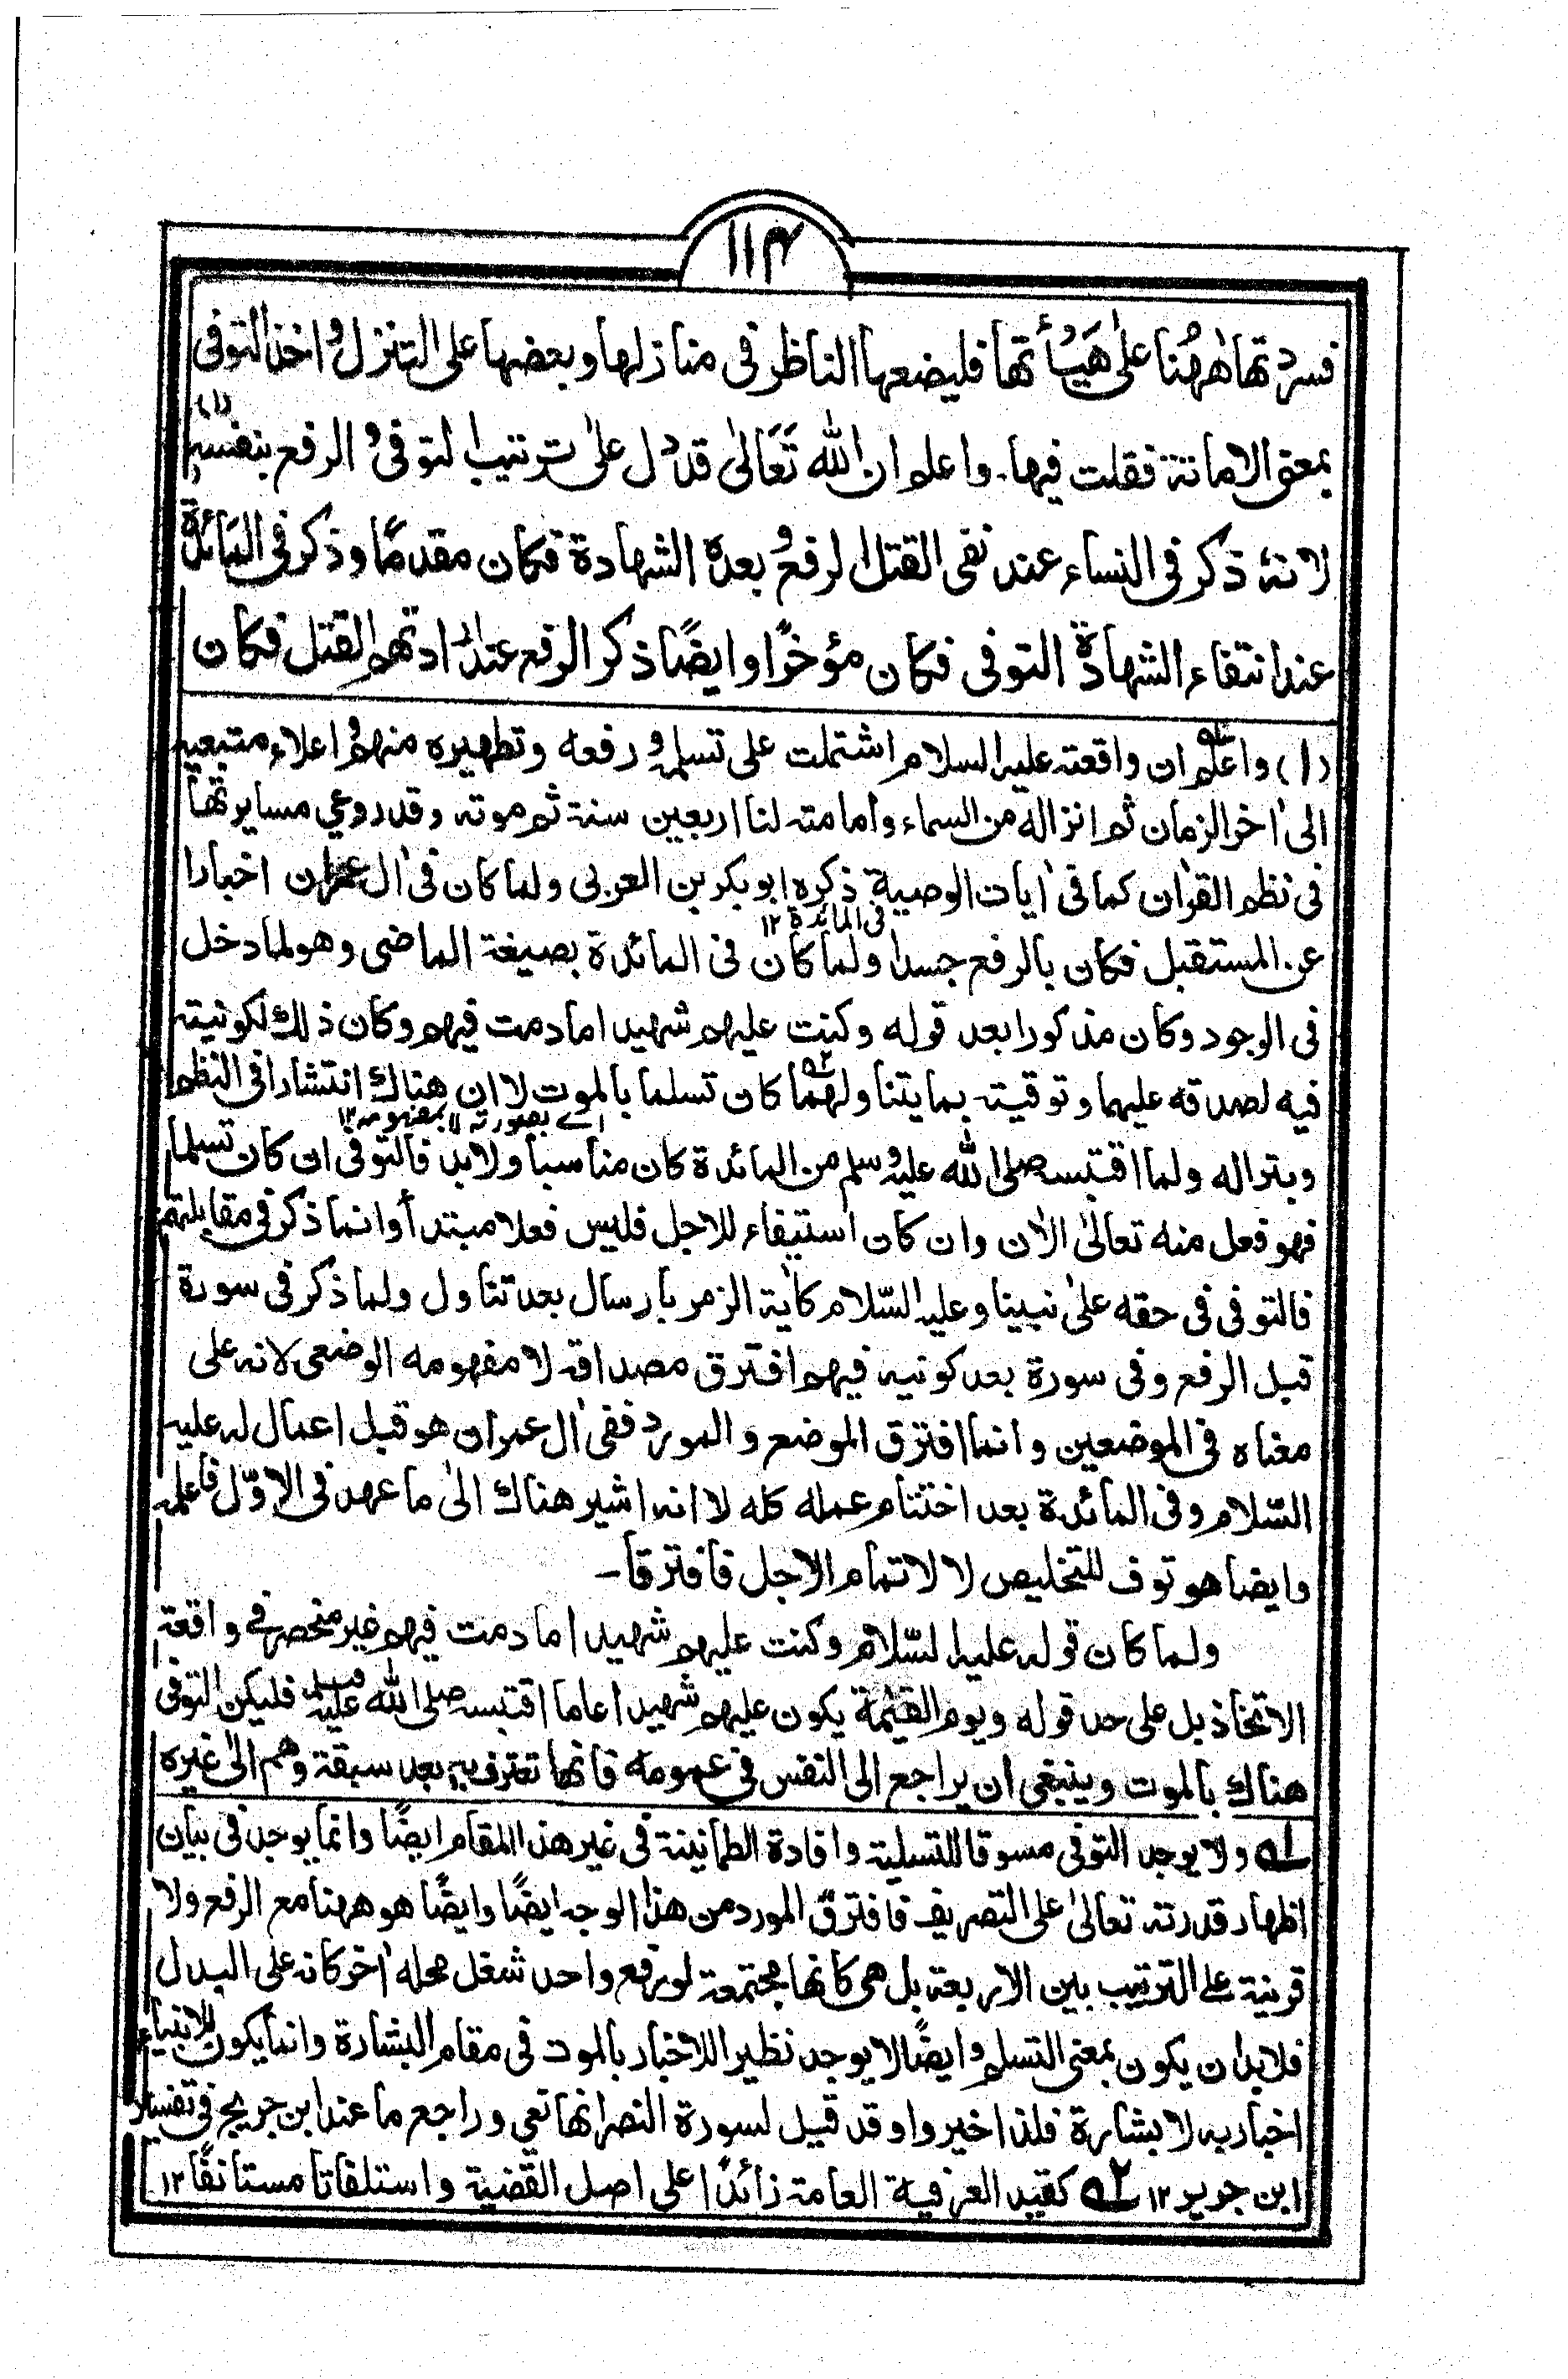 ۱۱۴
فسردتها هٰهُنا علٰى هَيْأتها فليضعها الناظر فى منازلها وبعضها على التنزل واخذ التوفى
بمعنى الاماتة فقلت فيها۔ واعلم ان الله تَعَالىٰ قد دل علىٰ ترتيب التوفى والرفع بنفسه (۱)
لانهٔ ذكر فى النساء عند نفى القتل الرفع وبعدہ الشهادة فكان مقدمًا وذكر فى المائدة
عند انتفاء الشهادة التوفى فكان مؤخرًا وايضًا ذكر الرفع عند ارادتهم القتل فكان
(۱) واعلم ۱ه ان واقعته عليه السلام اشتملت على تسلمه ورفعه وتطهيره منهم واعلاء متبعيه
الىٰ اٰخر الزمان ثم انزاله من السماء وامامته لنا اربعين سنة ثم موته وقد روعي مسايرتها
فى نظم القراٰن كما فى اٰيات الوصية ذكره ابو بكر بن العربى ولما كان فى اٰل عمران اخبارا
فى المائدة ۱۲
عن المستقبل فكان بالرفع جسدا ولما كان فى المائدة بصيغة الماضى وهو لما دخل
فى الوجود وكان مذكورا بعد قوله وكنت عليهم شهيدا ما دمت فيهم وكان ذلك لكونيته
فيه لصدقه عليهما وتوقيته بما يتناولهما ۲ه كان تسلما بالموت لا ان هناك انتشارا فى النظم
اے بصورته ۱۱ بمفهومه ۱۲
وبتراله ولما اقتبسه صلى الله عليه وسلم من المائدة كان مناسبا ولا بد فالتوفى ان كان تسلما
فهو فعل منه تعالىٰ الاٰن وان كان استيفاء للاجل فليس فعلا مبتدأ وانما ذكر فى مقابلتهم
فالتوفى فى حقه علىٰ نبينا وعليه السّلام كاٰية الزمر بارسال بعد تناول ولما ذكر فى سورة
قبل الرفع وفى سورة بعد كونيه فيهم افترق مصداقه لا مفهومه الوضعى لانه على
معناه فى الموضعين وانما افترق الموضع والمورد ففى اٰل عمران هو قبل اعمال له عليه
السّلام وفى المائدة بعد اختتام عمله كله لا انه اشير هناك الىٰ ما عهد فى الاوّل فاعلمه
وايضا هو توف للتخليص لا لاتمام الاجل فافترقا۔
ولما كان قوله عليه السّلام وكنت عليهم شهيدا ما دمت فيهم غير منحصر فے واقعة
الاتخاذ بل على حد قوله ويوم القيٰمة يكون عليهم شهيدا عاما اقتبسه صلى الله عليه وسلم فليكن التوفى
هناك بالموت وينبغى ان يراجع الى النفس فى عمومه فانها تعترف به بعد سبقة وهم الىٰ غيره
۱ه ولا يوجد التوفى مسوقا للتسلية وافادة الطمانينة فى غير هذا المقام ايضًا وانما يوجد فى بيان
اظهار قدرته تعالىٰ على التصريف فافترق المورد من هذا الوجه ايضًا وايضًا هو ههنا مع الرفع ولا
قرينة علے الترتيب بين الاربعة بل هى كانها مجتمعة لو رفع واحد شغل محله اٰخر كانه على البدل
فلا بد ان يكون بمعنى التسلم وايضًا لا يوجد نظير اللاخبار بالموت فى مقام البشارة وانما يكون للانبياء
اخبار به لا بشارة فلذا خيروا وقد قيل لسورة النصر انها نعي وراجع ما عند ابن جريج فى تفسير
ابن جرير ۱۲ ۲ه كقيد العرفية العامة زائدًا على اصل القضية واستلفاتا مستانفًا ۱۲